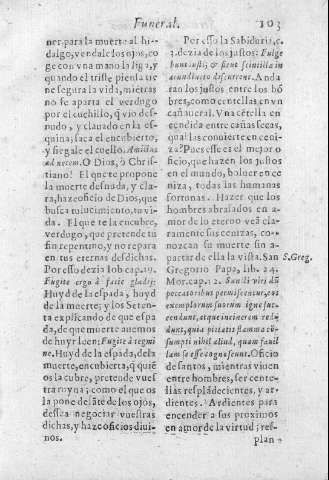 Funeral. 103
ner para la muerte al hi-
dalgo, vendale los ojos, co
ge con vna mano la liga, y
quando el triste piensa tie
ne segura la vida, mietras
no se aparta el verdugo
por el cuchillo, q̃ vio des-
nudo, y clauado en la es-
quina; saca el encubierto,
y siegale el cuello.
O Dios, ò Chris-
tiano! El que te propone
la muerte desnuda, y cla-
ra, haze oficio de Dios, que
busca tu lucimiento, tu vi-
da. El que te la encubre,
verdugo, que pretende tu
fin repentino, y no repara
en tus eternas desdichas.
Por esso dezia Iob cap. 19.
Fugite ergo à facie gladij;
Huyd de la espada, huyd
de la muerte; y los Seten-
ta explicando de que espa
da, de que muerte auemos
de huyr leen: Fugite à tegmi
ne. Huyd de la espada, de la
muerte, encubierta, q̃ quiẽ
os la cubre, pretende vues
tra royna; como el que os
la pone delãte de los ojos,
dessea negociar vuestras
dichas, y haze oficios diui
nos.
Por esso la Sabiduria, c.
3. dezia de los justos: Fulge
bunt iusti, & sicut scintillæ in
arundineto discurrent. Anda
ran los justos entre los hõ
bres, como centellas en vn
cañaueral. Vna cẽtella en
cendida entre cañas secas,
que? las conuierte en ceni-
za? Pues esse es el mejor o
ficio, que hazen los justos
en el mundo, boluer en ce
niza, todas las humanas
fortunas. Hazer que los
hombres abrasados en a-
mor de lo eterno veã cla-
ramente sus cenizas, co-
nozcan su muerte sin a-
partar de ella la vista. San S. Greg.
Gregorio Papa, lib. 24.
Mor. cap. 12. Sancti viri dũ
peccatoribus permiscentur, eos
exemplorum suorum igne suc-
cendunt, atque in cinerem redi
dunt, quia pietatis flamma cõ-
sumpti nihil aliud, quam fauil
lam se esse cognoscunt. Oficio
de santos, mientras viuen
entre hombres, ser cente-
llas resplãdecientes, y ar-
dientes. Ardientes para
encender a sus proximos
en amor de la virtud; res-
plan-